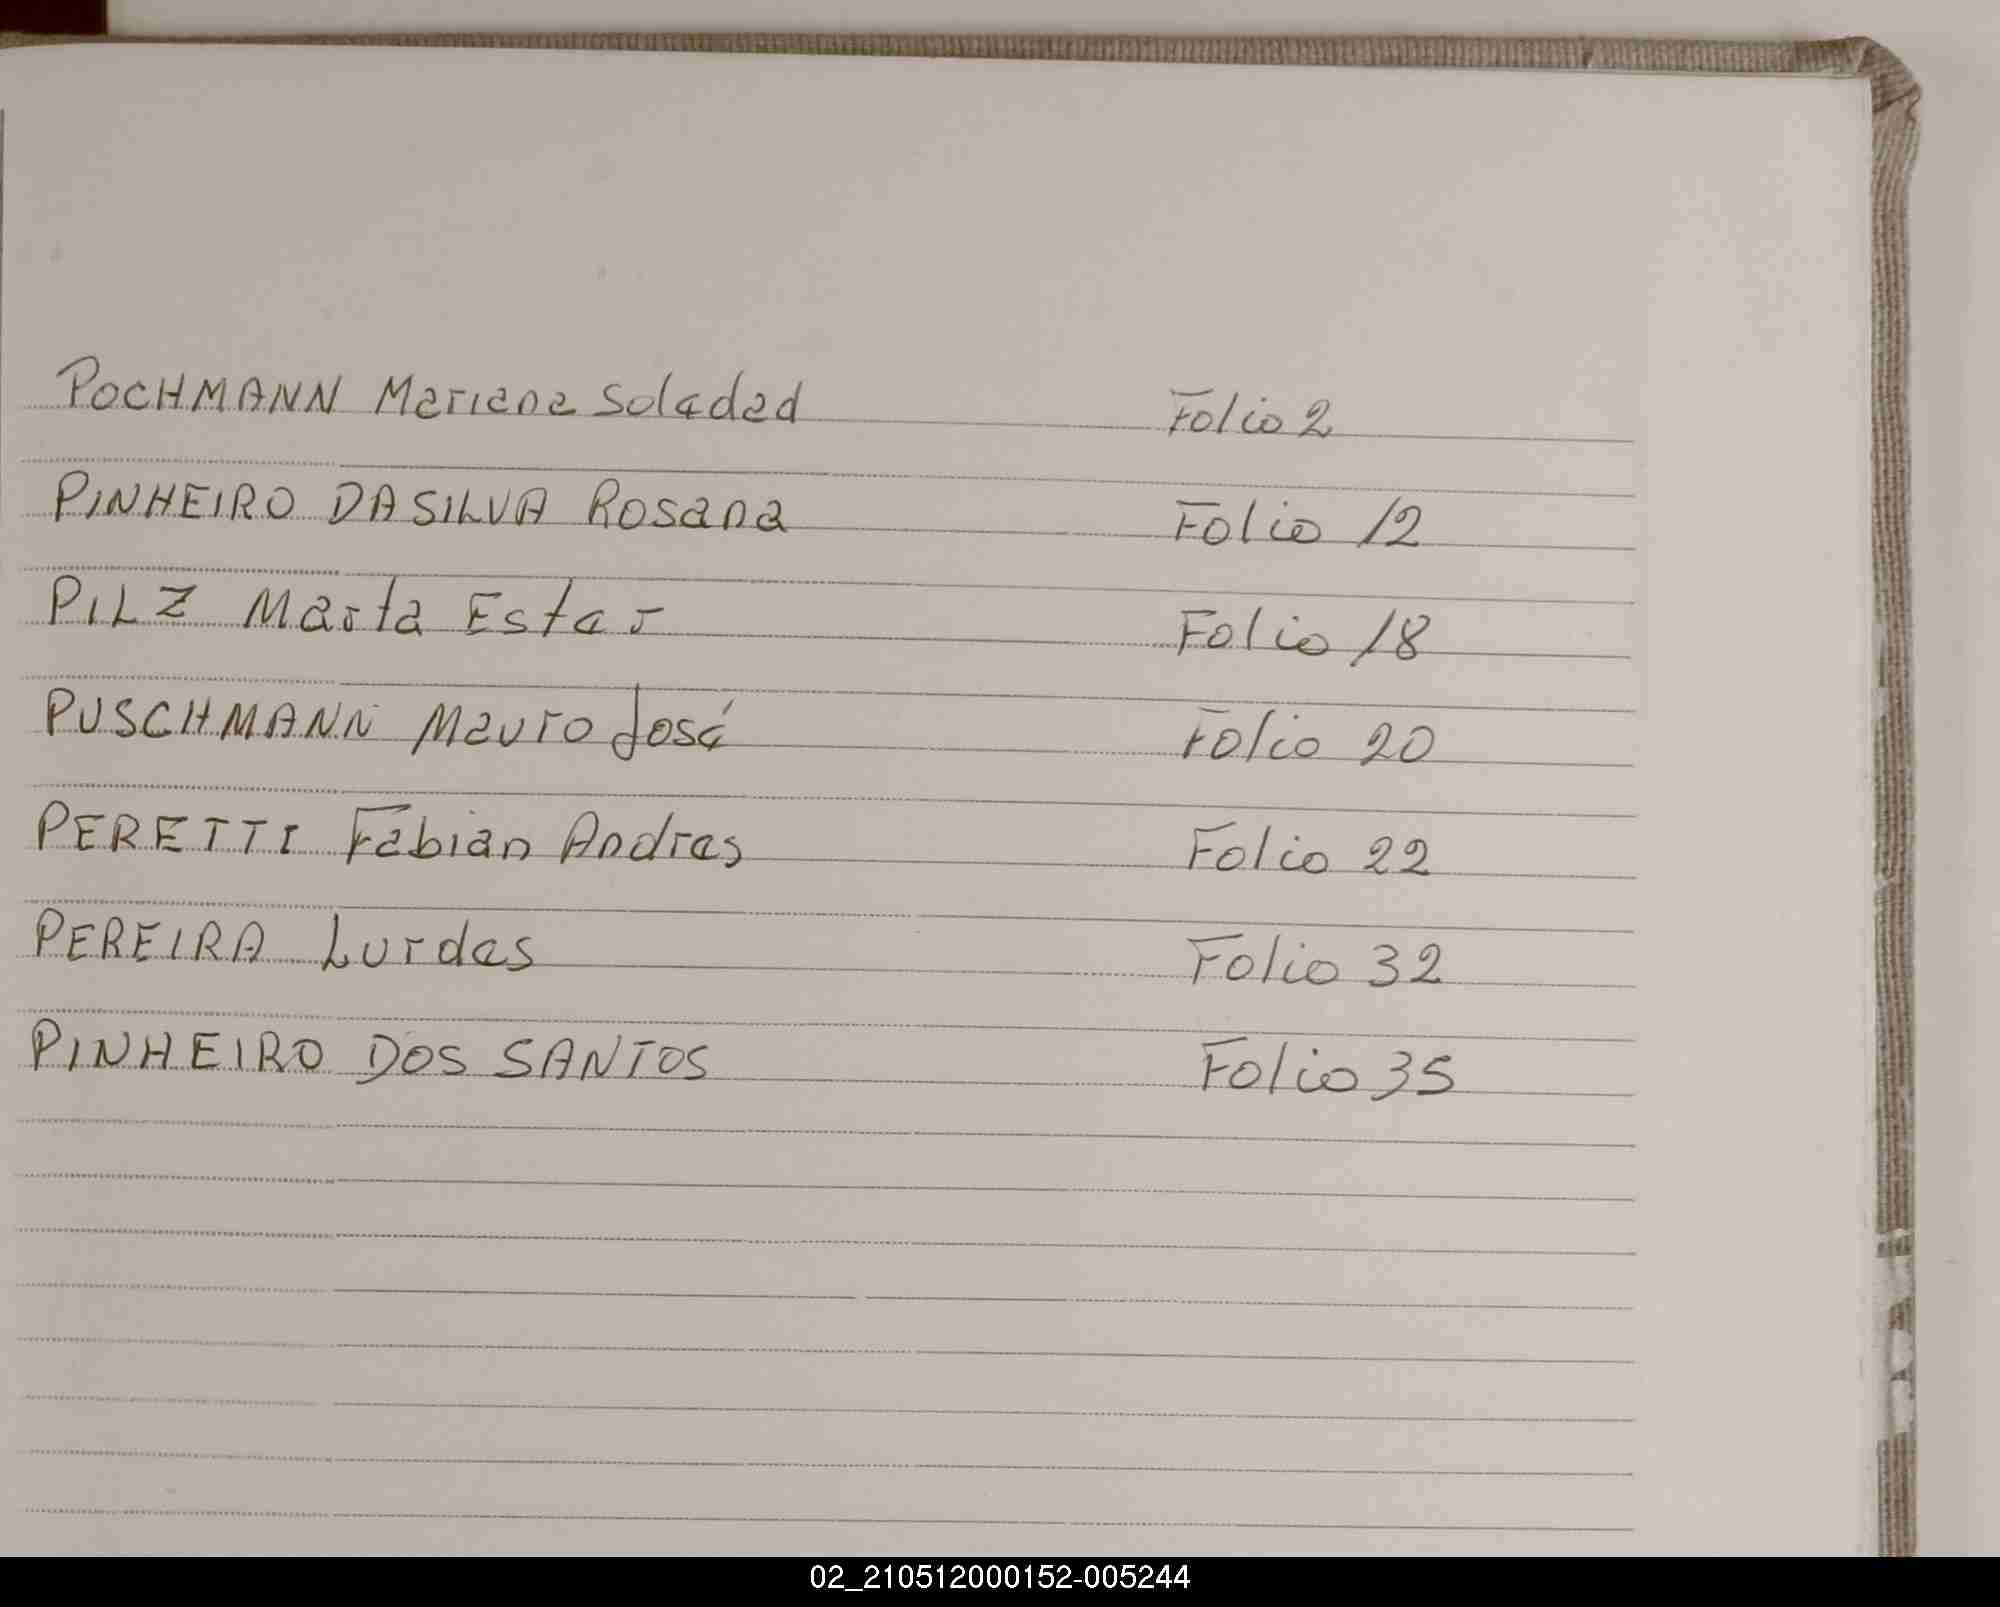 POCHMANN Mariana Soledad Folio 2
PINHEIRO DA SILVA Rosana Folio 12
PILZ Marta Ester Folio 18
PUSCHMANN Mauro José Folio 20
PERETTI Fabian Andres Folio 22
PEREIRA Lurdes Folio 32
PINHEIRO DOS SANTOS Folio 35
02_210512000152-005244